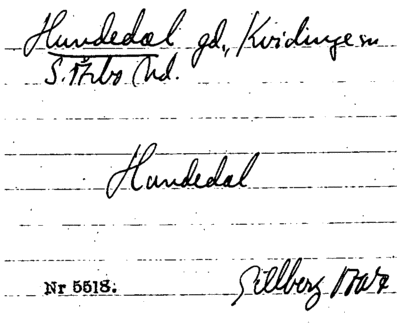 Hundedal gd., Kvidinge sn
S. Åsbo hd.
Hundedal
Nr 5518. Gillberg